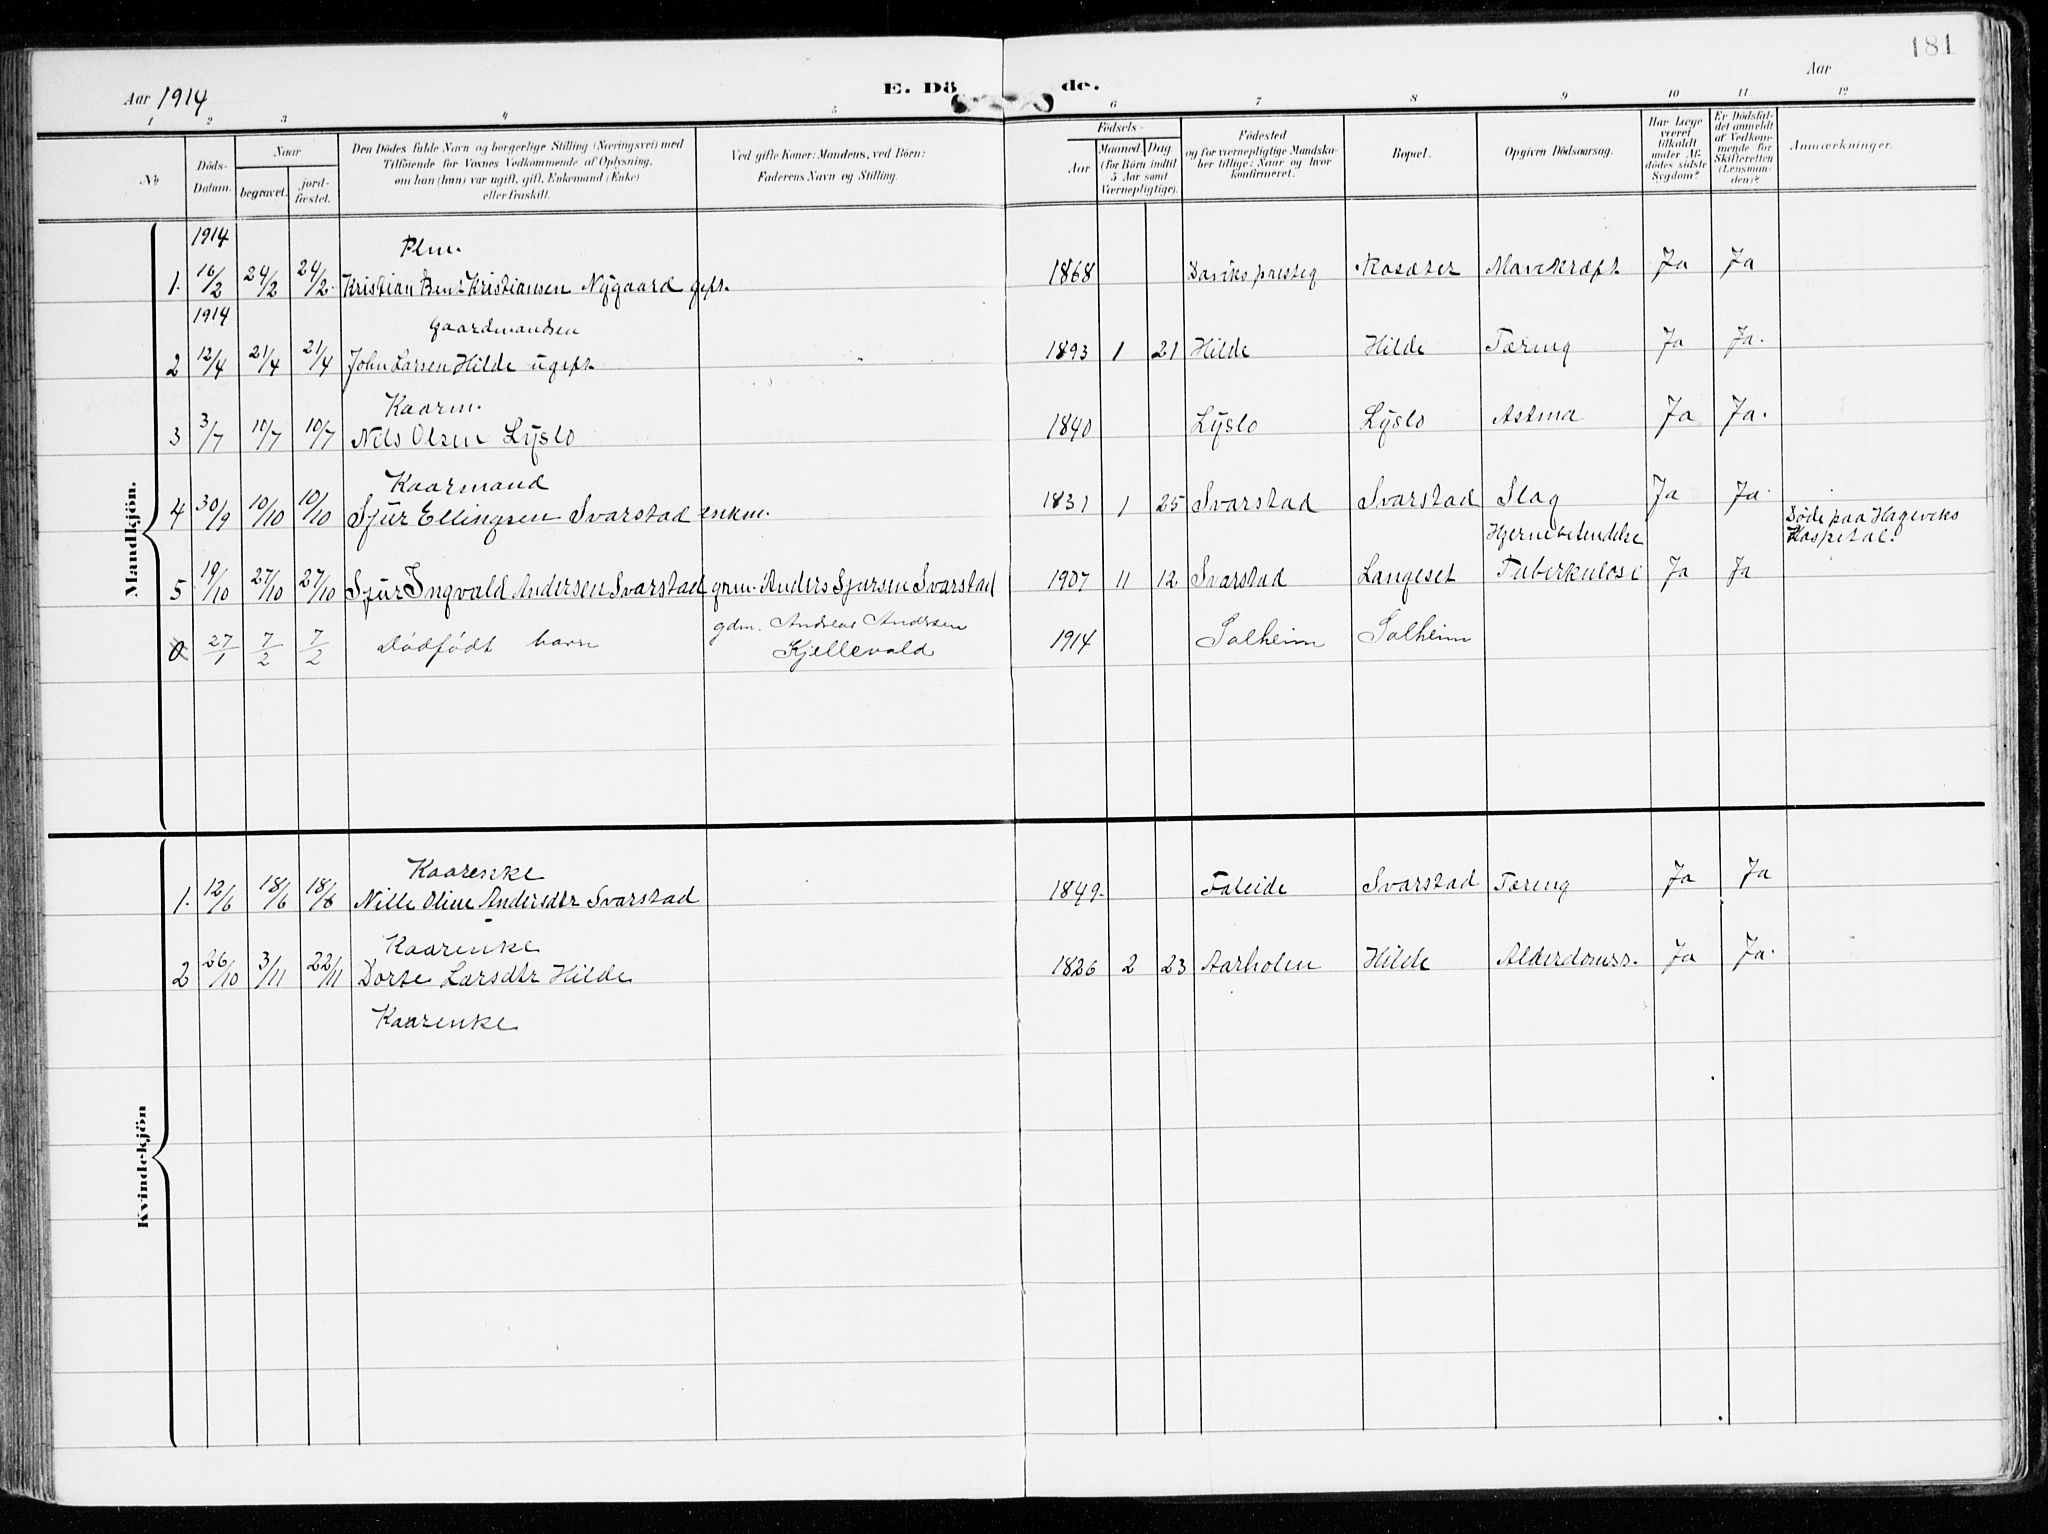 181
Aar 1914
E. Dö de.
Aar
1 2 3 4 5 6 7 8 9 10 11 12
No
Döds-Datum.
Naar
begravet.
jord-fæstet.
Den Dödes fulde Navn og borgerlige Stilling (Næringsvei) med
Tilföiende for Voxnes Vedkommende af Oplysning,
om han (hun) var ugift, gift, Enkemand (Enke)
eller fraskilt.
Ved gifte Koner: Mandens, ved Börn:
Faderens Navn og Stilling.
Födsels-
Aar
Maaned Dag.
(for Börn indtil
5 Aar samt
Værnepligtige).
Födested
og for værnepligtige Mandska-
ber tillige: Naar og hvor
konfirmeret.
Bopæl.
Opgiven Dödsaarsag.
Har Læge
været
tilkaldt
under Af-
dödes sidste
Sygdom?
Er Dödsfal-
det anmeldt
af Vedkom-
mende for
Skifteretten
(Lensman-
den)?
Anmærkninger.
Mandkjön.
1914
Plm.
1. 16/2 24/2 24/2. Kristian Ben. Kristiansen Nygaard gift. 1868 Daviks presteg Roseter Mavekræft Ja Ja
1914
Gaardmandsen
2 12/4 21/4 21/4 John Larsen Hilde ugift. 1893 1 21 Hilde Hilde Tæring Ja Ja.
Kaarm.
3 3/7 10/7 10/7 Nils Olsen Lyslo 1840 Lyslo Lyslo Astma Ja Ja.
Kaarmand
4 30/9 10/10 10/10 Sjur Ellingsen Svarstad enkm. 1831 1 25 Svarstad Svarstad Slag Ja Ja.
Hjernebetendelse
Døde paa Hageviks
Hospital.
5 19/10 27/10 27/10 Sjur Ingvald Andersen Svarstad grm. Anders Sjursen Svarstad 1907 11 12 Svarstad Langeset Tuberkulose Ja Ja
0 27/1 7/2 7/2 Dødfødt barn gdm. Andreas Andersen
Kjellevold 1914 Solheim Solheim
Kvindekjön
Kaarenke
1. 12/6 18/6 18/6 Nille Oline Andersdtr Svarstad 1849. Faleide Svarstad Tæring Ja Ja
Kaarenke
2 26/10 3/11 22/11 Dorte Larsdtr Hilde 1826 2 23 Aarholen Hilde Alderdomss. Ja Ja.
Kaarenke